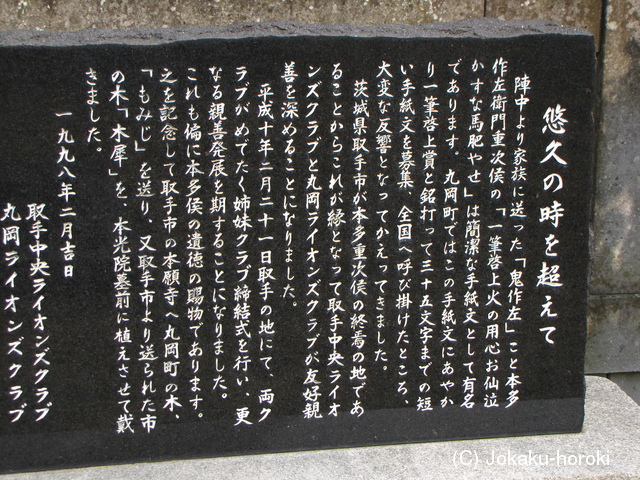 悠久の時を超えて
陣中より家族に送った「鬼作左」こと本多
作左衛門重次侯の「一筆啓上火の用心お仙泣
かすな馬肥やせ」は簡潔な手紙文として有名
であります。丸岡町ではこの手紙文にあやか
り一筆啓上賞と銘打って三十五文字までの短
い手紙文を募集、全国へ呼び掛けたところ、
大変な反響となってかえってきました。
茨城県取手市が本多重次侯の終焉の地であ
ることからこれが縁となって取手中央ライオ
ンズクラブと丸岡ライオンズクラブが友好親
善を深めることになりました。
平成十年二月二十一日取手の地にて、両ク
ラブがめでたく姉妹クラブ締結式を行い、更
なる親善発展を期することになりました。
これも偏に本多侯の遺徳の賜物であります。
之を記念して取手市の本願寺へ丸岡町の木、
「もみじ」を送り、又取手市より送られた市
の木「木犀」を、本光院墓前に植えさせて戴
きました。
一九九八年二月吉日
取手中央ライオンズクラブ
丸岡ライオンズクラブ
(C) Jokaku-horoki